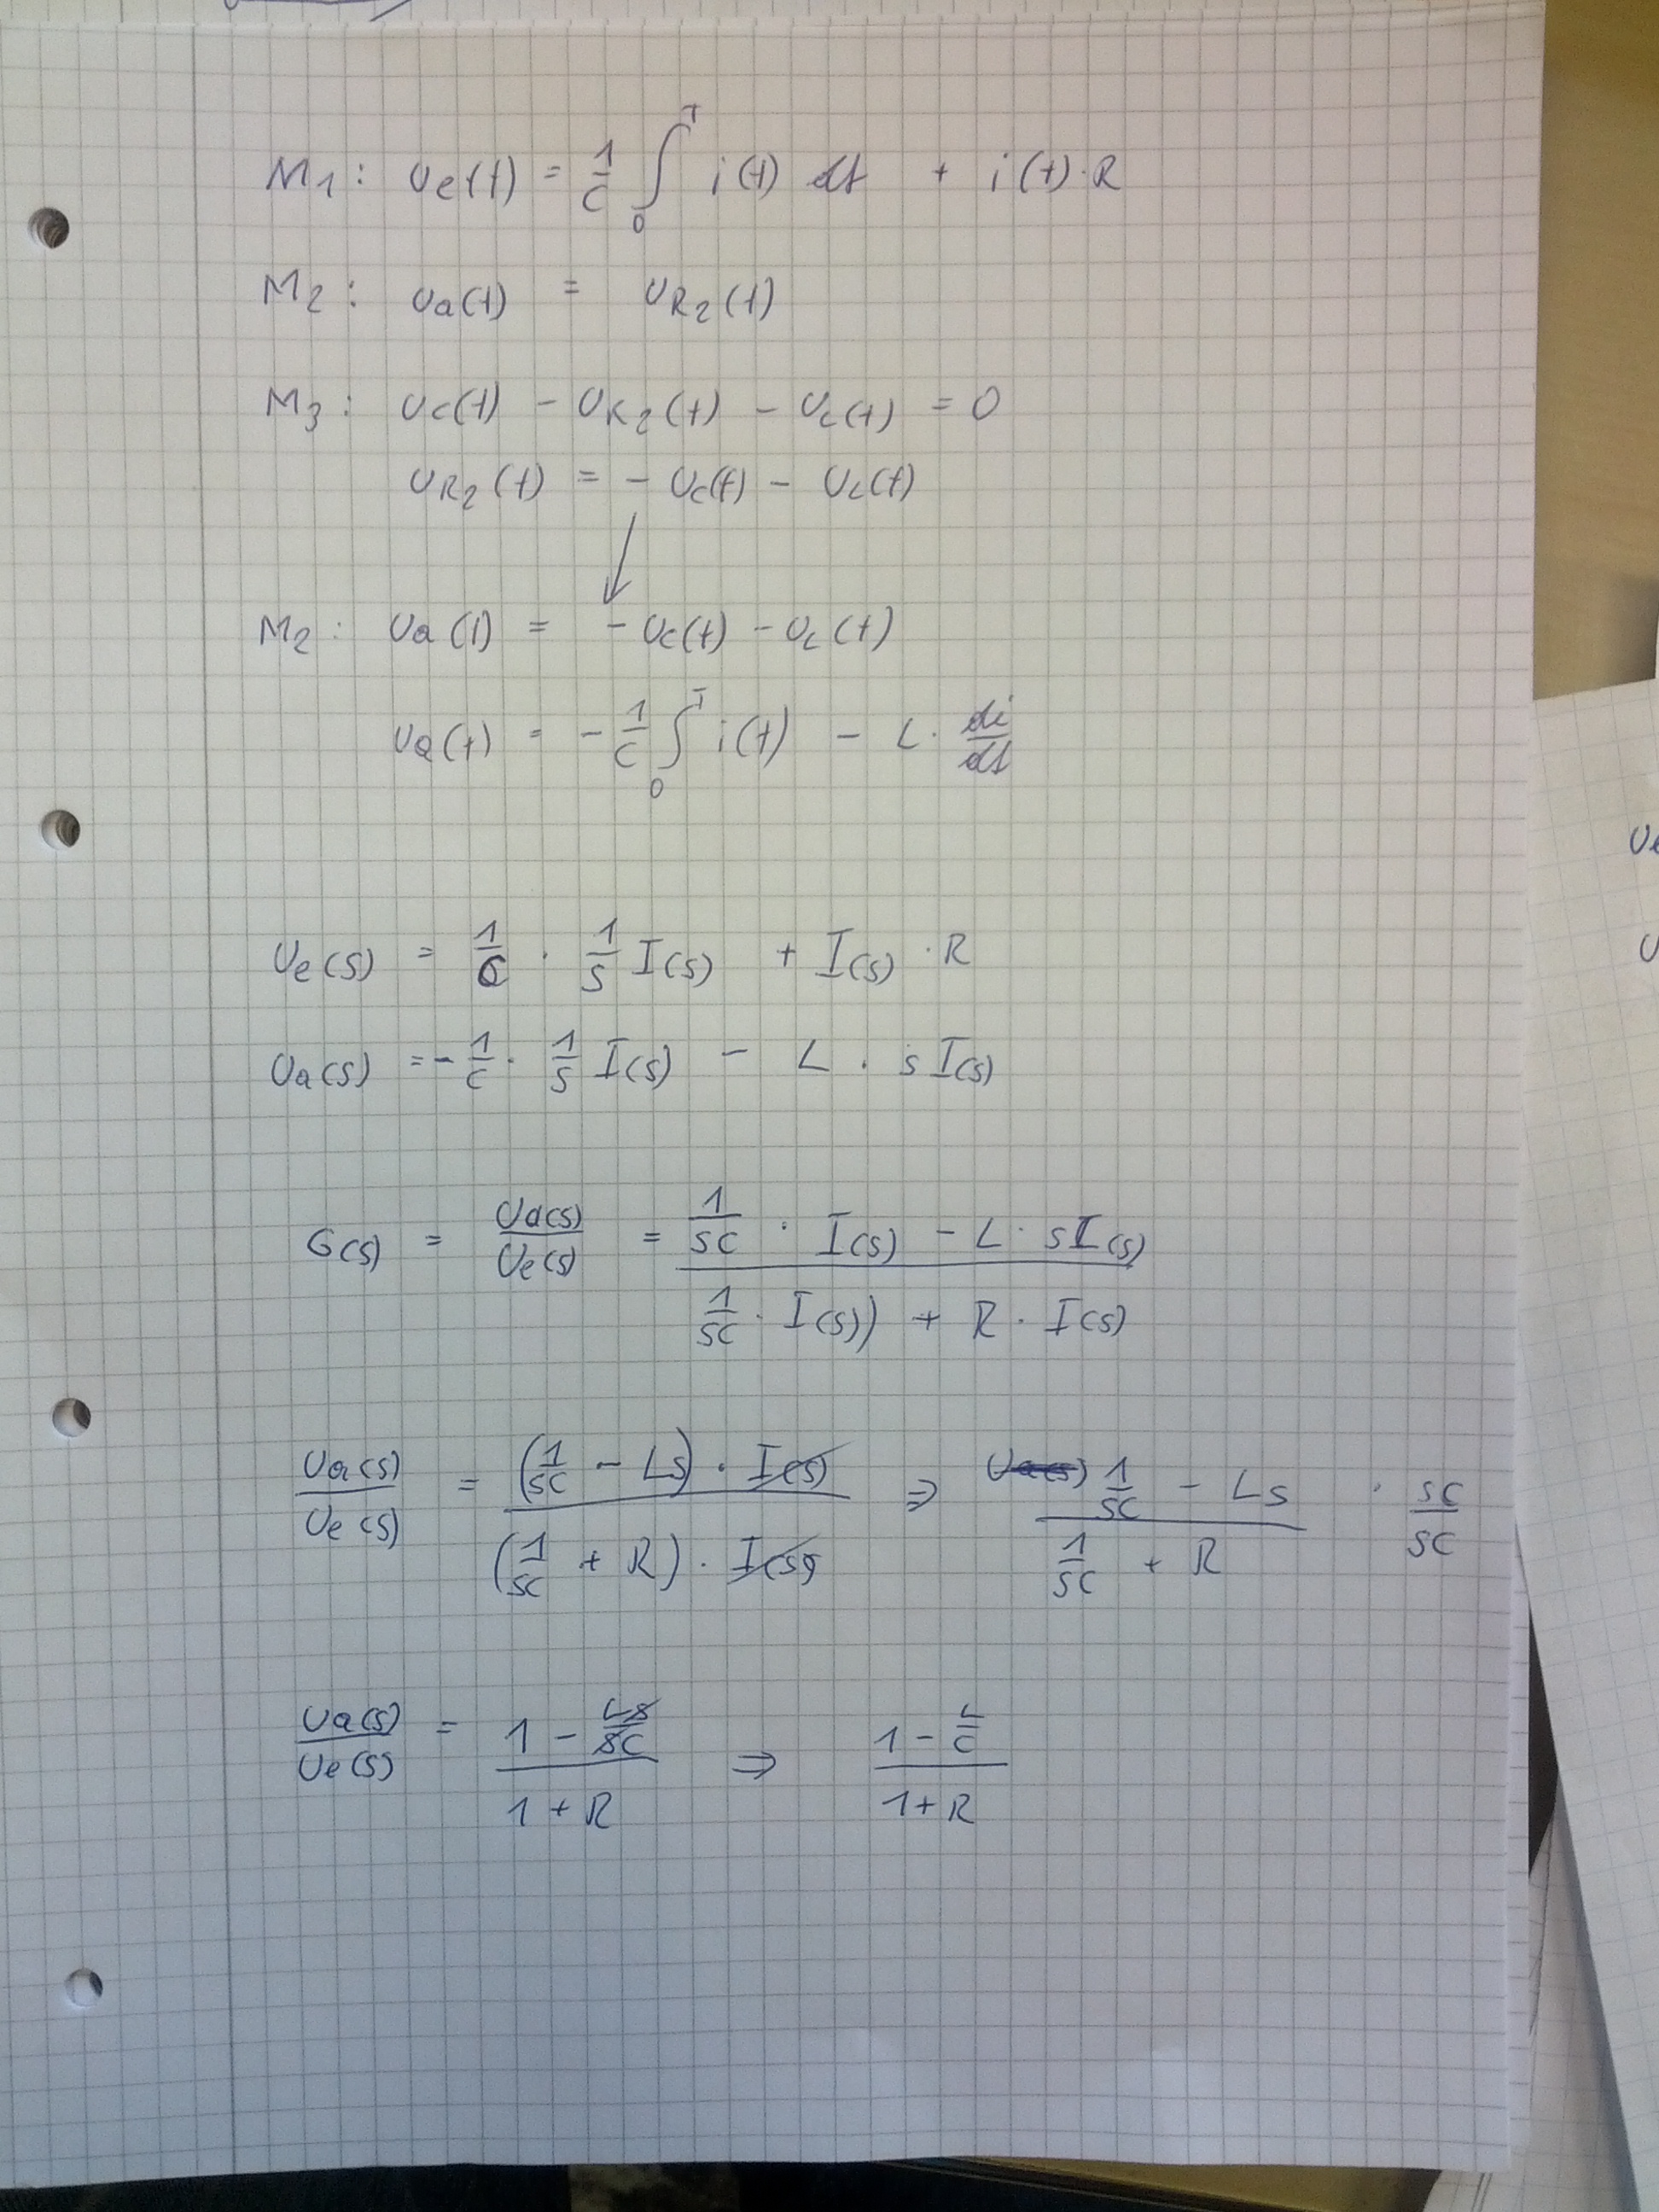 M1: ue(t) = 1/C ∫₀ᵀ i(t) dt + i(t)·R
M2: ua(t) = uR2(t)
M3: uc(t) - uR2(t) - uL(t) = 0
uR2(t) = - uc(t) - uL(t)
↓
M2: ua(t) = - uc(t) - uL(t)
ua(t) = - 1/C ∫₀ᵀ i(t) - L · di/dt
Ue(s) = 1/C · 1/s I(s) + I(s) · R
Ua(s) = - 1/C · 1/s I(s) - L · s I(s)
G(s) = Ua(s)/Ue(s) = (1/sC · I(s) - L · sI(s)) / (1/sC · I(s)) + R · I(s)
Ua(s)/Ue(s) = (1/sC - Ls) · I(s) / (1/sC + R) · I(s) ⇒ Ua(s) 1/sC - Ls / 1/sC + R · sC/sC
Ua(s)/Ue(s) = 1 - Ls/sC / 1 + R ⇒ 1 - L/C / 1 + R